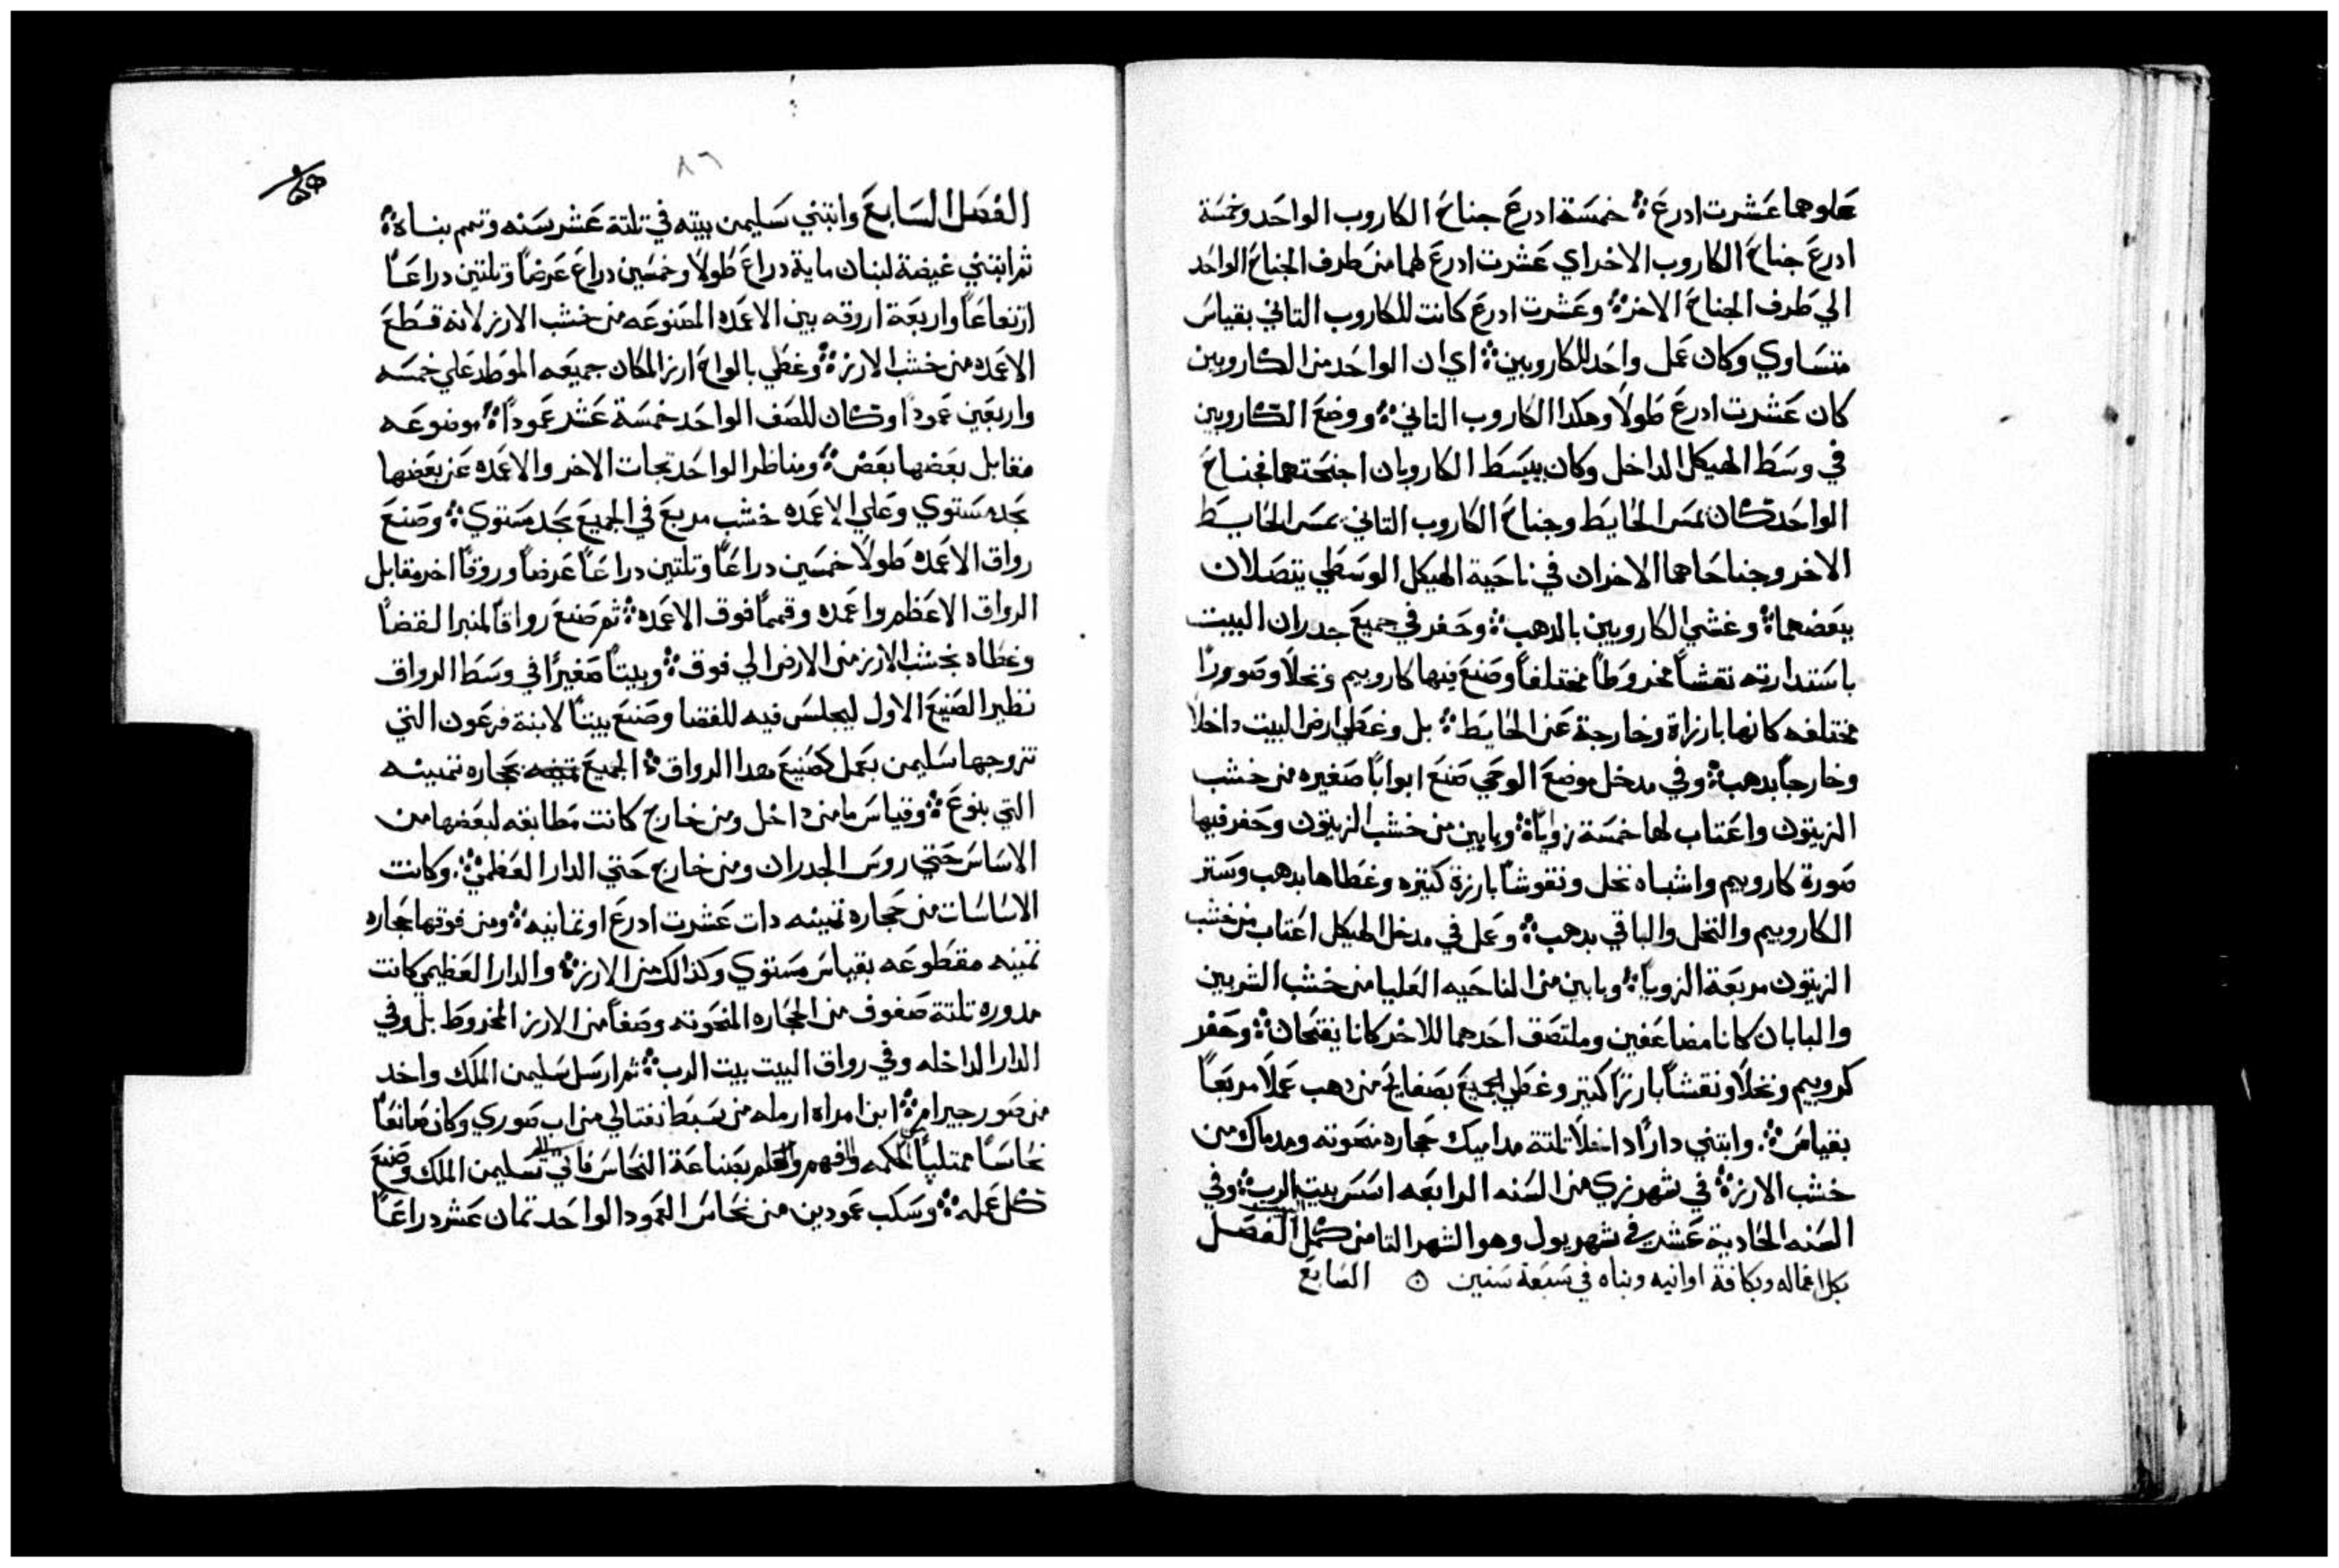 علوهما عشرت ادرع ❖ خمسة ادرع جناح الكاروب الواحد وخمسة
ادرع جناح الكاروب الاخر اي عشرت ادرع لهما من طرف الجناح الواحد
الي طرف الجناح الاخر ❖ وعشرت ادرع كانت للكاروب التاني بقياس
متساوي وكان عمل واحد للكاروبين ❖ اي ان الواحد من الكاروبين
كان عشرت ادرع طولاً وهكدا الكاروب التاني ❖ ووضع الكاروبين
في وسط الهيكل الداخل وكان يبسط الكاروبان اجنحتهما فجناح
الواحد كان يمس الحايط وجناح الكاروب التاني يمس الحايط
الاخر وجناحاهما الاخران في ناحية الهيكل الوسطي يتصلان
ببعضهما ❖ وغشي الكاروبين بالدهب ❖ وحفر في جميع جدران البيت
باستدارته نقشاً مخروطاً مختلفاً وصنع فيها كاروبيم ونخلاً وصوراً
مختلفه كانها بارزاة وخارجة عن الحايط ❖ بل وغطي ارض البيت داخلاً
وخارجاً بدهب ❖ وفي مدخل موضع الوحي صنع ابواباً صغيره من خشب
الزيتون واعتاب لها خمسة زوايا ❖ وبابين من خشب الزيتون وحفر فيها
صورة كاروبيم واشباه نخل ونقوشاً بارزة كتيره وغطاها بدهب وستر
الكاروبيم والنخل والباقي بدهب ❖ وعمل في مدخل الهيكل اعتاب من خشب
الزيتون مربعة الزويا ❖ وبابين من الناحيه العليا من خشب الشربين
والبابان كانا مضاعفين وملتصق احدهما للاخر كانا يفتحان ❖ وحفر
كروبيم ونخلاً ونقشاً بارزاً كتير وغطي الجميع بصفايح من دهب عملاً مربعاً
بقياس ❖ وابتني داراً داخلاً تلتة مداميك حجاره منحوته ومدماك من
خشب الارز ❖ في شهر زي من السنه الرابعه اسس بيت الرب ❖ وفي
السنه الحادية عشر في شهر بول وهو الشهر التامن كمل البيت الفصل
بكل اعماله وبكافة اوانيه وبناه في سبعة سنين ⊙ السابع
٨٦
الفصل السابع وابتني سليمن بيته في تلتة عشر سنه وتمم بناه ❖
ثم ابتني غيضة لبنان ماية دراع طولاً وخمسين دراع عرضاً وتلتين دراعاً
ارتفاعاً واربعة اروقه بين الاعمده المصنوعه من خشب الارز لانه قطع
الاعمده من خشب الارز ❖ وغطي بالواح ارز المكان جميعه الموطد علي خمسه
واربعين عموداً وكان للصف الواحد خمسة عشر عموداً ❖ موضوعه
مقابل بعضها بعض ❖ ومناظر الواحد تجات الاخر والاعمده عن بعضها
بحد مستوي وعلي الاعمده خشب مربع في الجميع بحد مستوي ❖ وصنع
رواق الاعمده طولاً خمسين دراعاً وتلتين دراعاً عرضاً وروقاً اخر مقابل
الرواق الاعظم واعمده وقمماً فوق الاعمده ❖ ثم صنع رواقاً لمنبر القضا
وغطاه بخشب الارز من الارض الي فوق ❖ وبيتاً صغيراً في وسط الرواق
نظير الصنيع الاول ليجلس فيه للقضا وصنع بيتاً لابنة فرعون التي
تزوجها سليمن بعمل كصنيع هدا الرواق ❖ الجميع بحجاره تمينه
التي بنوع ❖ وقياس ما من داخل ومن خارج كانت مطابقه لبعضها من
الاساس حتي روس الجدران ومن خارج حتي الدار العظمي ❖ وكانت
الاساسات من حجاره تمينه دات عشرت ادرع او تمانيه ❖ ومن فوقها حجاره
تمينه مقطوعه بقياس مستوي وكذالك من الارز ❖ والدار العظيمي كانت
مدوره تلتة صفوف من الحجاره المنحوته وصفاً من الارز المخروط بل وفي
الدار الداخله وفي رواق البيت بيت الرب ❖ ثم ارسل سليمن الملك واخد
من صور جيرام ❖ ابن امراه ارمله من سبط نفتالي من اب صوري وكان صانعاً
نحاساً ممتلياً من الحكمه والفهم والعلم بصناعة النحاس فاتي الي سليمن الملك وصنع
كل عمله ❖ وسكب عمودين من نحاس العمود الواحد تمان عشر دراعاً